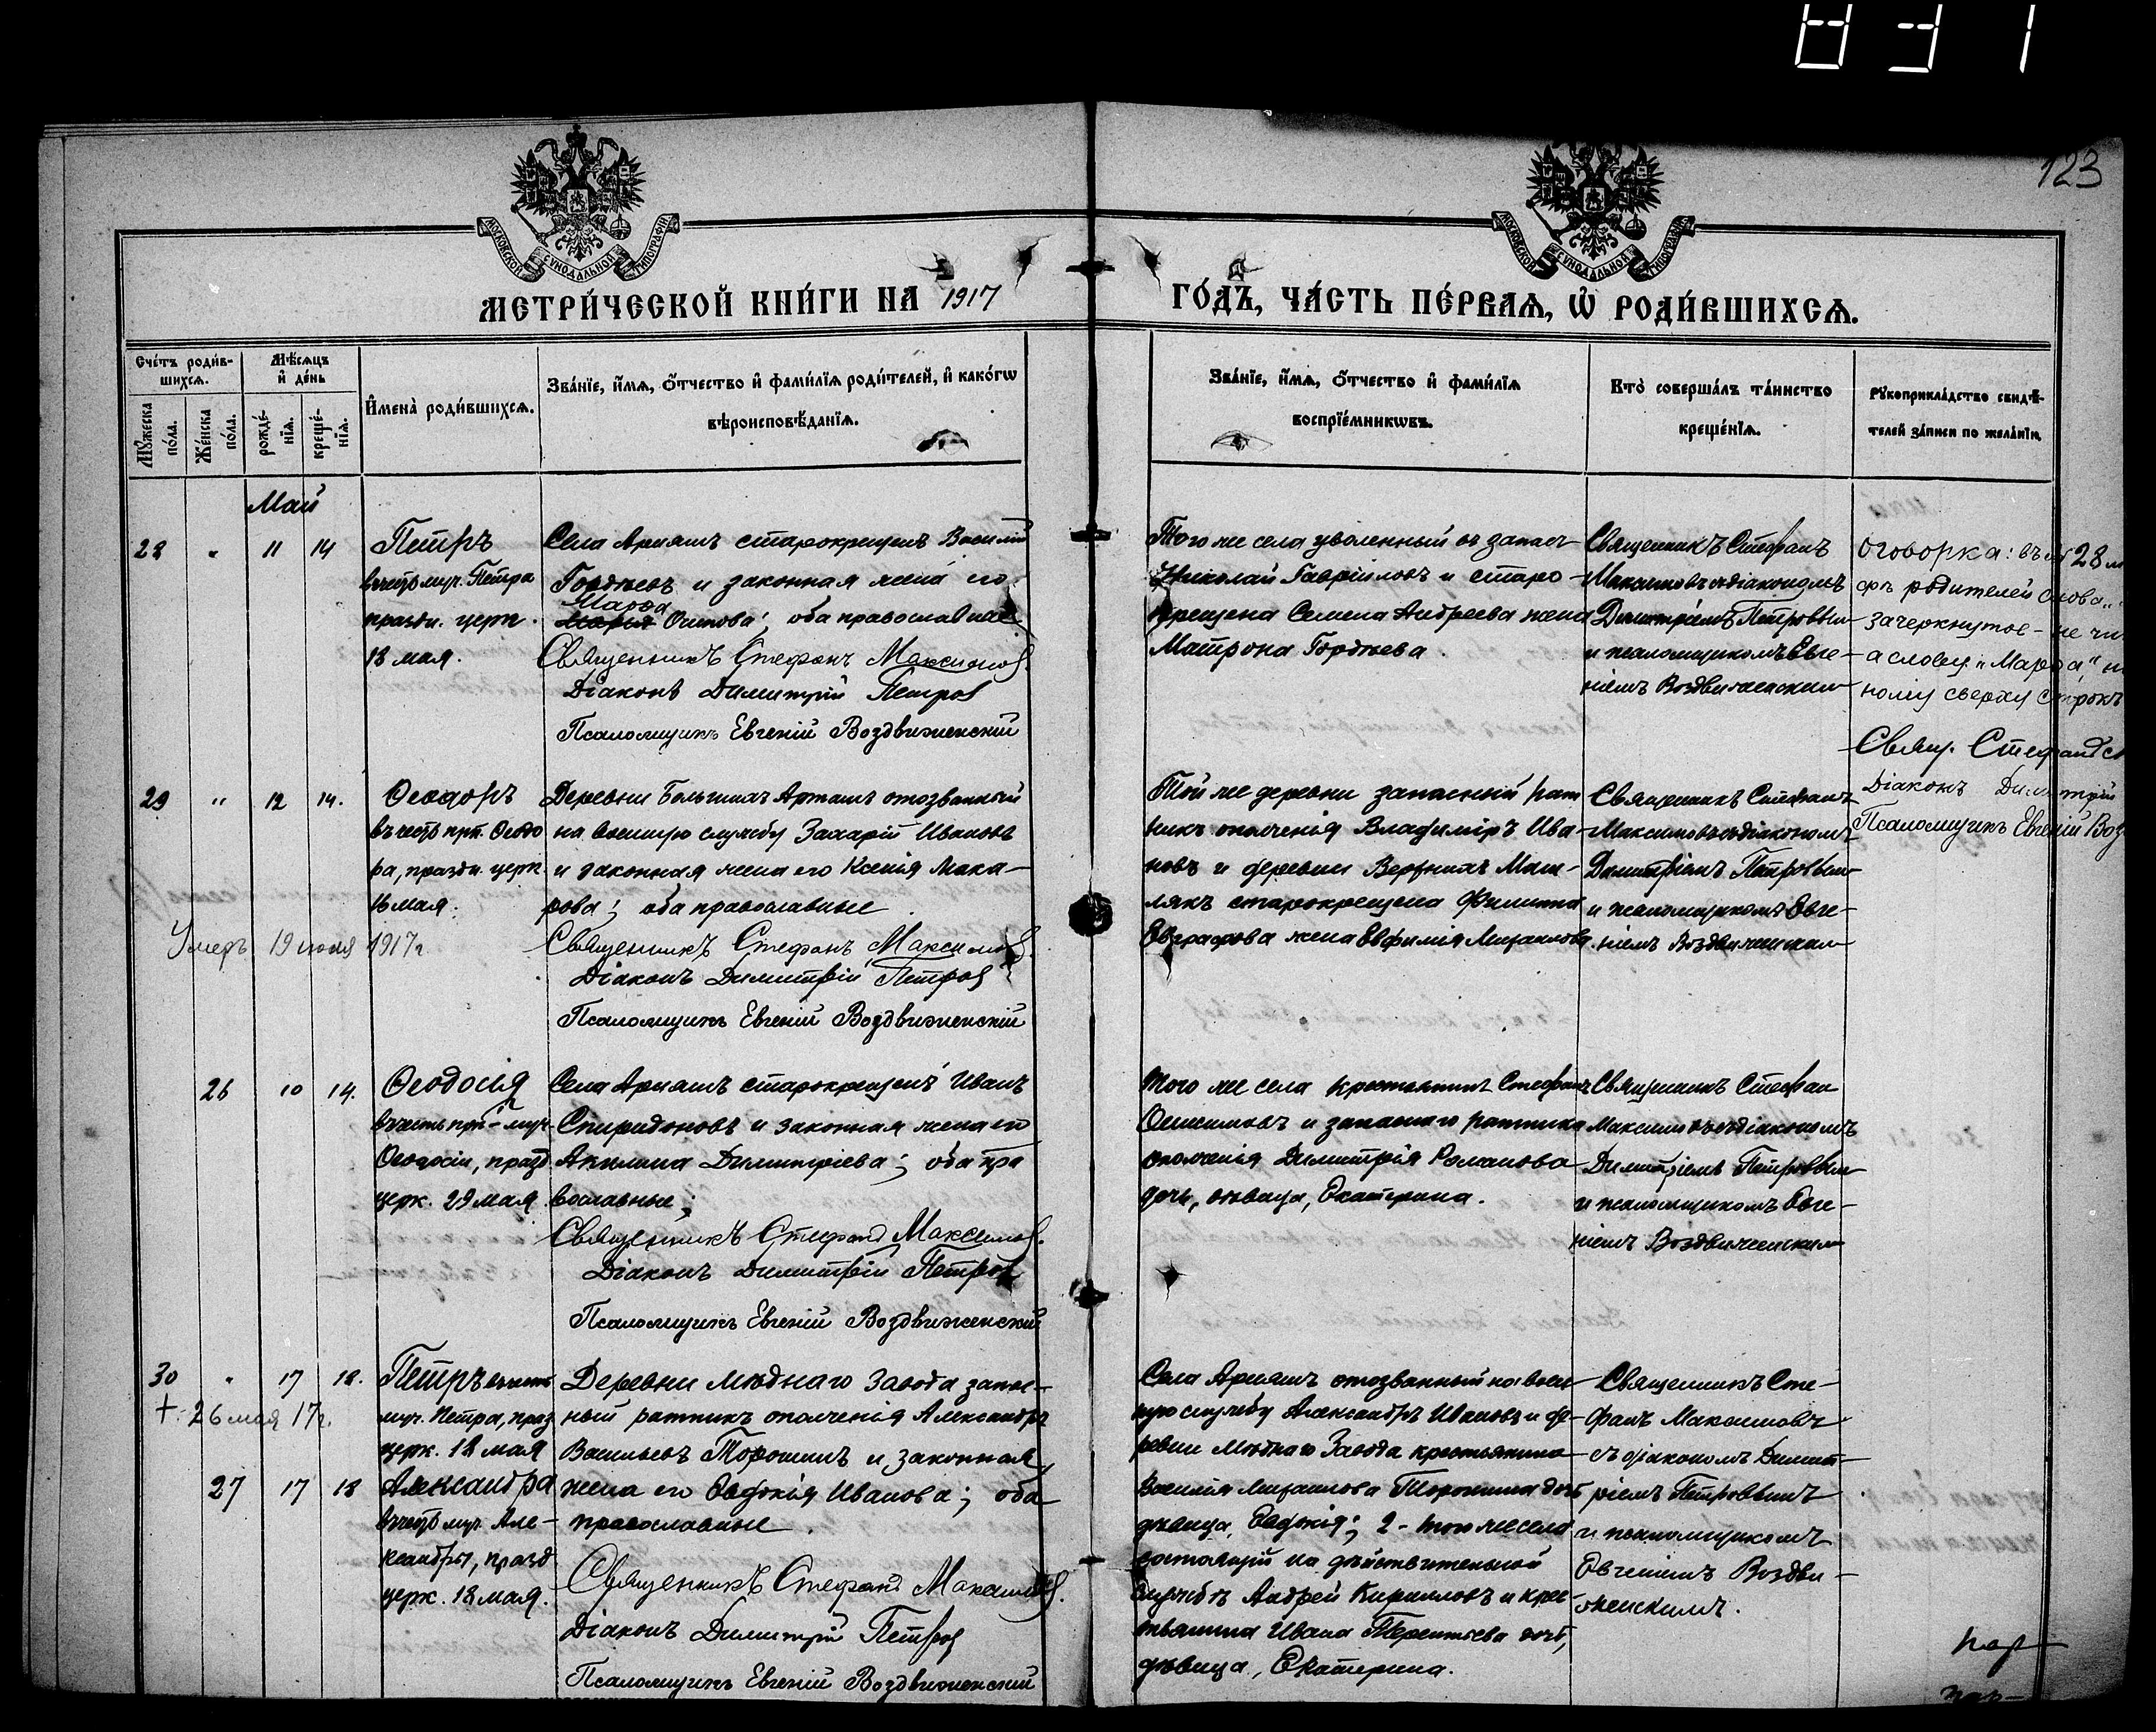 831
123
МОСКОВСКОЙ СѴНОДАЛЬНОЙ ТИПОГРАФІИ
МОСКОВСКОЙ СѴНОДАЛЬНОЙ ТИПОГРАФІИ
МЕТРИ́ЧЕСКОЙ КНИ́ГИ НА 1917 ГО́ДЪ, ЧА́СТЬ ПЕ́РВАѦ, Ѡ РОДИ́ВШИХСѦ.
Сче́тъ роди́в-
шихсѧ.
Мꙋжеска по́ла.
Же́нска по́ла.
Мѣ́сѧцъ и҆ де́нь
рожде́-
нїѧ.
креще́-
нїѧ.
И҆мена̀ роди́вшихсѧ.
Зва́нїе, и҆́мѧ, ѻ҆́тчество и҆ фами́лїѧ роди́телей, и҆ како́гѡ
вѣроисповѣ́данїѧ.
Зва́нїе, и҆́мѧ, ѻ҆́тчество и҆ фами́лїѧ
воспрїе́мникѡвъ.
Кто̀ соверша́лъ та́инство
креще́нїѧ.
Рꙋкоприкла́дство свидѣ́-
телей за́писи по жела́нїю.
Май
28 " 11 14
Петръ
въ честь муч. Петра
праздн. церк.
18 мая.
Села Арняшъ старокрещенъ Василій
Гордѣевъ и законная жена его
Марѳа
Осипова; оба православные
Священникъ Стефанъ Максимов
Діаконъ Димитрій Петров
Псаломщикъ Евгеній Воздвиженскій
Того же села уволенный въ запасъ
Николай Гавріиловъ и старо-
крещена Семена Андреева жена
Матрона Гордѣева.
Священникъ Стефанъ
Максимовъ съ діакономъ
Димитріемъ Петровым
и псаломщикомъ Евге-
ніемъ Воздвиженским
Оговорка: въ № 28
родителей слова
зачеркнутое - не чи
а слову "Марѳа",
ному сверху строкъ
Свящ. Стефанъ
Діаконъ Димитрій
Псаломщикъ Евгеній Воз
29 " 12 14.
Ѳеодоръ
въ честь прп. Ѳеодо
ра, праздн. церк
16 мая.
Умеръ 19 іюля 1917 г.
Деревни Большихъ Арташъ отозванный
на военную службу Захарій Ивановъ
и законная жена его Ксенія Мака-
рова; оба православные.
Священникъ Стефанъ Максимов.
Діаконъ Димитрій Петров
Псаломщикъ Евгеній Воздвиженскій
Той же деревни запасный рат
никъ ополченія Владиміръ Ива-
новъ и деревни Верхнихъ Маш-
лякъ старокрещена Филиппа
Евграфова жена Евфимія Михаилова.
Священникъ Стефанъ
Максимовъ съ діакономъ
Димитріемъ Петровым
и псаломщикомъ Евге-
ніемъ Воздвиженским
26 10 14.
Ѳеодосія
въ честь прп-муч.
Ѳеодосіи, празд
церк. 29 мая
Села Арняшъ старокрещенъ Иванъ
Спиридоновъ и законная жена его
Акилина Димитріева; оба пра
вославные;
Священникъ Стефанъ Максимов.
Діаконъ Димитрій Петров
Псаломщикъ Евгеній Воздвиженскій
Того же села крестьянинъ Стефанъ
Онисимовъ и запаснаго ратника
ополченія Димитрія Романова
дочь, дѣвица, Екатерина.
Священникъ Стефан
Максимовъ съ діакономъ
Димитріемъ Петровым
и псаломщикомъ Евге-
ніемъ Воздвиженским
30 " 17 18.
+ 26 мая 17 г.
Петръ въ честь
муч. Петра, празд
церк. 18 мая
27 17 18
Александра
въ честь муч. Але-
ксандры, празд
церк. 18 мая.
Деревни Мѣднаго Завода запас-
ный ратникъ ополченія Александръ
Васильевъ Торошинъ и законная
жена его Евдокія Иванова; оба
православные.
Священникъ Стефанъ Максимов.
Діаконъ Димитрій Петров
Псаломщикъ Евгеній Воздвиженскій
Села Арняшъ отозванный на воен
ную службу Александръ Ивановъ и де-
ревни Мѣднаго Завода крестьянина
Василія Михаилова Торошина дочь
дѣвица, Евдокія; 2- того же села
состоящій на дѣйствительной
службѣ Андрей Кирилловъ и крес
тьянина Ивана Терентьева дочь,
дѣвица, Екатерина.
Священникъ Сте-
фанъ Максимовъ
съ діакономъ Димит-
ріемъ Петровымъ
и псаломщикомъ
Евгеніемъ Воздви-
женскимъ.